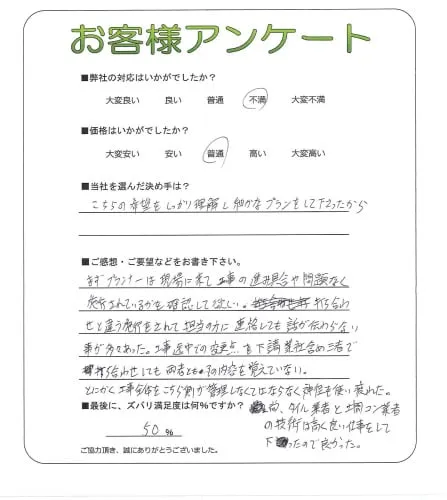 お客様アンケート
■弊社の対応はいかがでしたか?
大変良い 良い 普通 不満 大変不満
■価格はいかがでしたか?
大変安い 安い 普通 高い 大変高い
■当社を選んだ決め手は?
こちらの希望をしっかり理解し細かなプランをして下さったから
■ご感想・ご要望などをお書き下さい。
まずプランナーは現場に来て工事の進み具合や問題なく
発行されているかを確認して欲しい。打ち合わ
せと違う発行をされて担当の方に連絡しても話が伝わらない
事が多々あった。工事途中での変更点を下請業社含め三者で
打ち合わせしても両者ともその内容を覚えていない。
とにかく工事全体をこちら側が管理しなくてはならなく神経を使い疲れた。
■最後に、ズバリ満足度は何%ですか?
タイル業者と土間コン業者
の技術は高く良い仕事をして
下さったので良かった。
50 %
ご協力頂き、誠にありがとうございました。